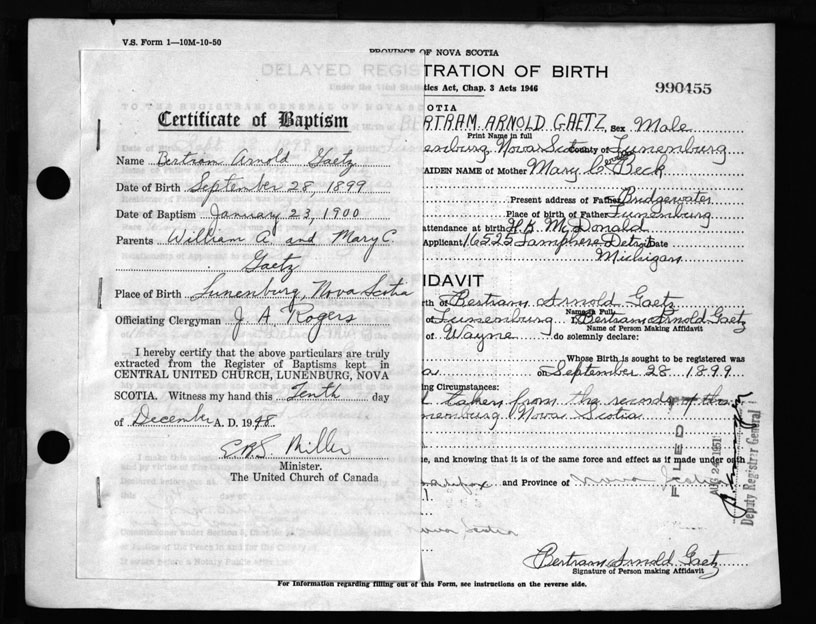 V.S. Form 1—10M-10-50
PROVINCE OF NOVA SCOTIA
DELAYED REGISTRATION OF BIRTH
tics Act, Chap. 3 Acts 1946
990455
Certificate of Baptism
Name Bertram Arnold Gaetz
Date of Birth September 28, 1899
Date of Baptism January 23, 1900
Parents William A. and Mary C.
Gaetz
Place of Birth Lunenburg, Nova Scotia
Officiating Clergyman J. A. Rogers
I hereby certify that the above particulars are truly
extracted from the Register of Baptisms kept in
CENTRAL UNITED CHURCH, LUNENBURG, NOVA
SCOTIA. Witness my hand this Tenth day
of December A. D. 1948.
Miller
Minister.
The United Church of Canada
COTIA
BERTRAM ARNOLD GAETZ, Sex Male
Print Name in full
enburg, Nova Scotia County of Lunenburg
MAIDEN NAME of Mother Mary C. Beck
Present address of Father Bridgewater
Place of birth of Father Lunenburg
attendance at birth H. B. McDonald
Applicant 16525 Lamphere Detroit Date
Michigan
FIDAVIT
rth of Bertram Arnold Gaetz
Name in Full
of Lunenburg I, Bertram Arnold Gaetz
Name of Person Making Affidavit
of Wayne do solemnly declare:
Whose Birth is sought to be registered was
on September 28 1899
ing Circumstances:
taken from the records of the
nenburg Nova Scotia
ue, and knowing that it is of the same force and effect as if made under oath
and Province of Nova Scotia
FILED
AUG 24 1951
Deputy Registrar General
Nova Scotia
Bertram Arnold Gaetz
Signature of Person making Affidavit
For Information regarding filling out of this Form, see instructions on the reverse side.